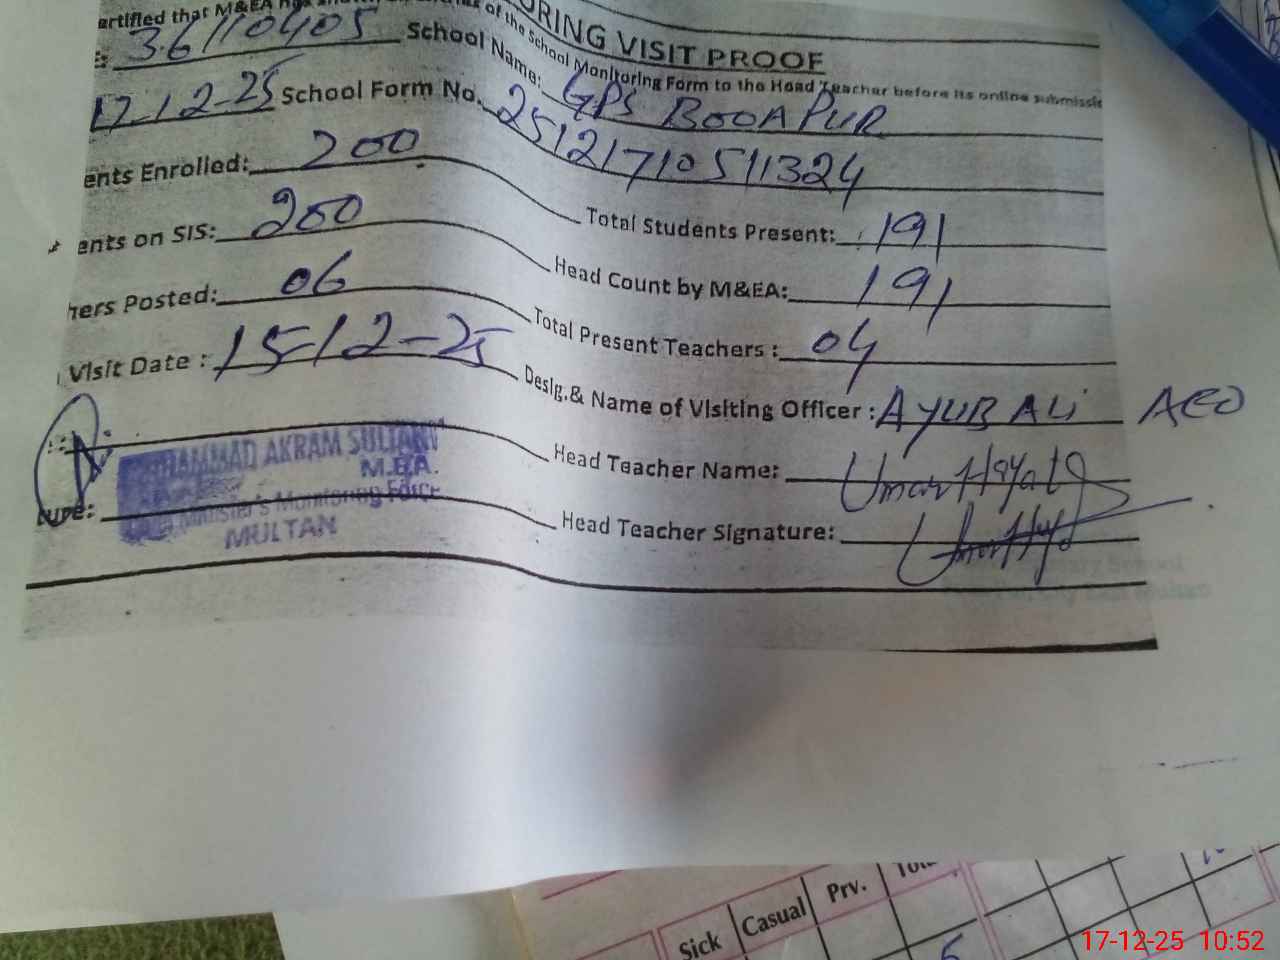 ORING VISIT PROOF
ertified that M&EA has
of the School Monitoring Form to the Head Teacher before its online submissi
: 36110405 School Name: GPS BOOAPUR
17-12-25 School Form No. 2512171051 1324
ents Enrolled: 200 Total Students Present: 191
ents on SIS: 200 Head Count by M&EA: 191
hers Posted: 06 Total Present Teachers : 04
Visit Date : 15-12-25 Desig.& Name of Visiting Officer : AYUB ALi AEO
Head Teacher Name: Umar Hayat
ture: Head Teacher Signature:
HAMMAD AKRAM SULTAN
M.B.A.
Minister's Monitoring Force
MULTAN
Sick Casual Prv.
17-12-25 10:52